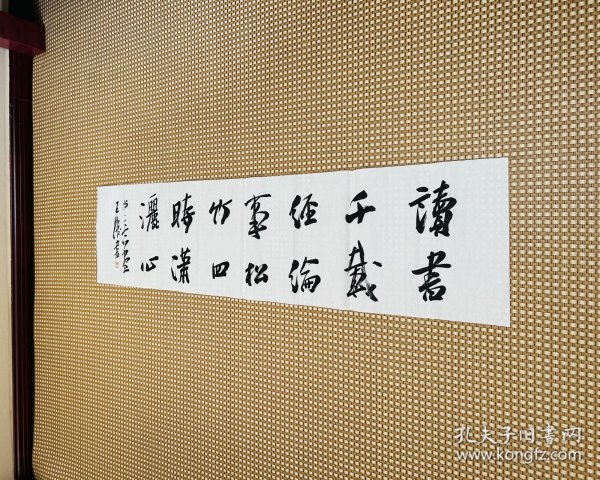 讀書
千載
經綸
事松
竹四
時瀟
灑心
孔夫子旧書网
www.kongfz.com